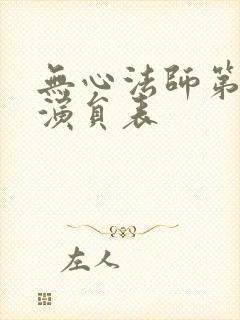 無心法師第
演員表
左人